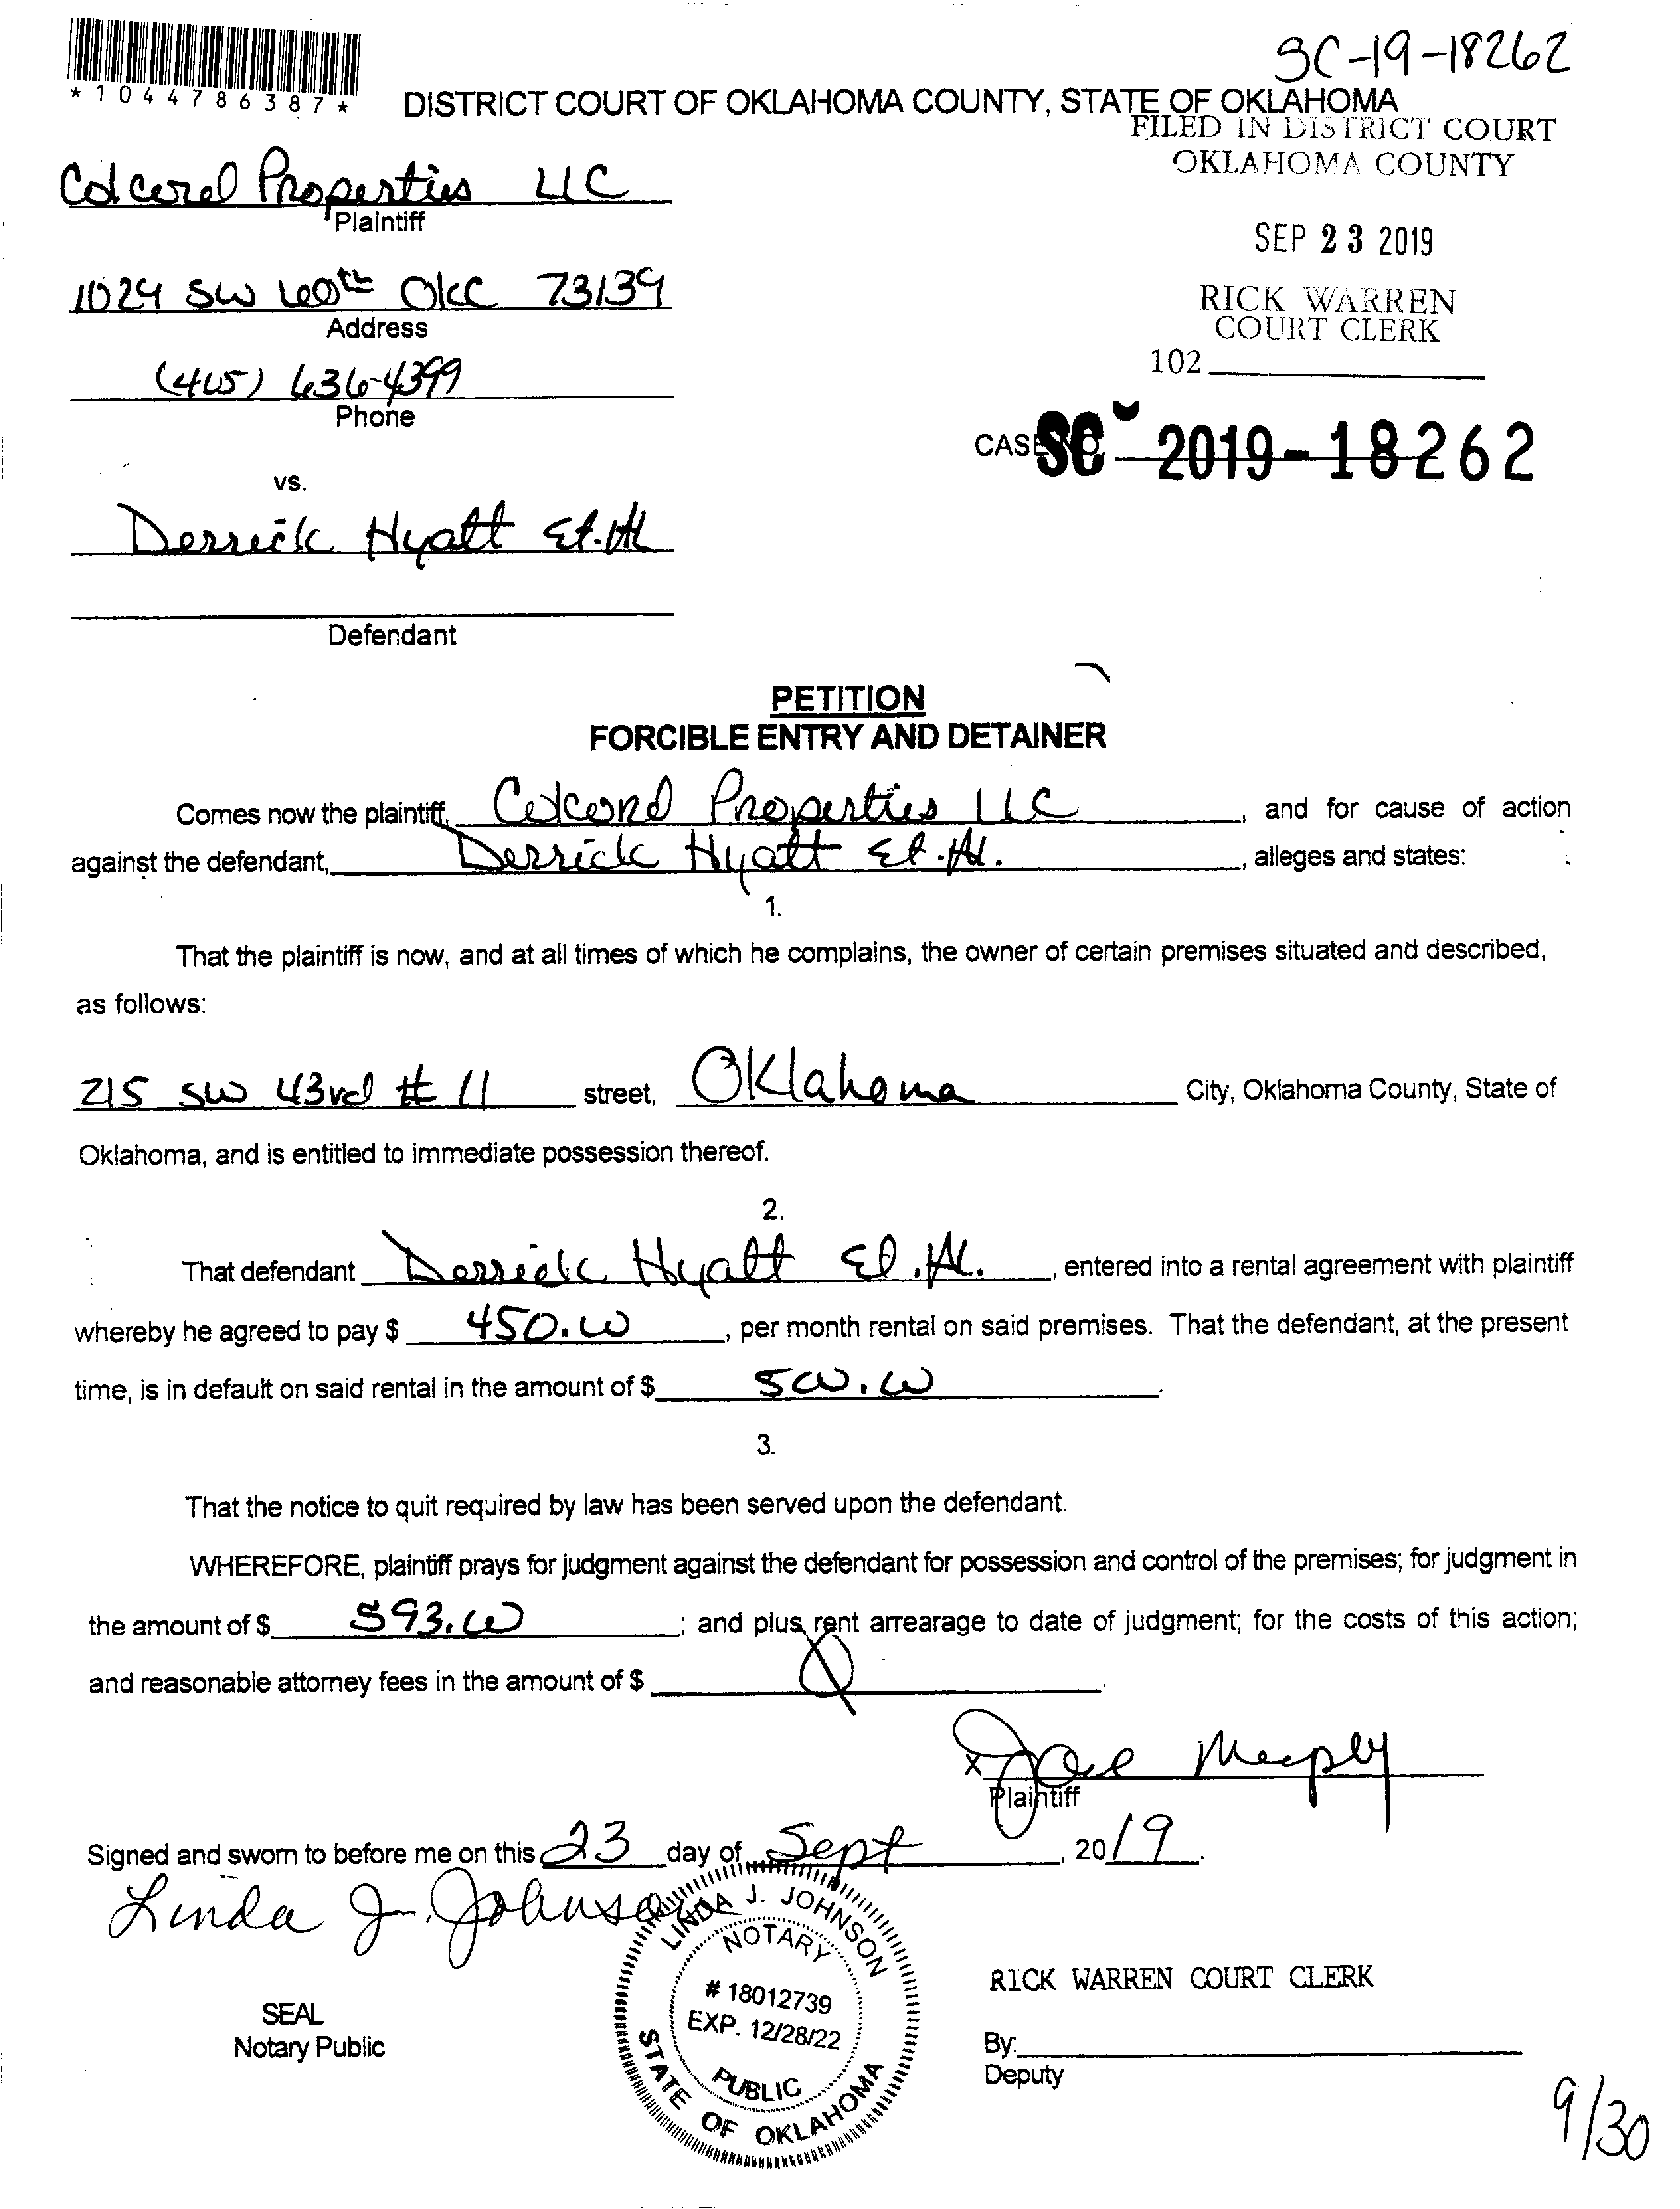 SC-19-18262
*1044786387*
DISTRICT COURT OF OKLAHOMA COUNTY, STATE OF OKLAHOMA
FILED IN DISTRICT COURT
OKLAHOMA COUNTY
Colcord Properties LLC
Plaintiff
SEP 23 2019
1024 SW 60th OKC 73139
Address
RICK WARREN
COURT CLERK
(405) 636-4399
Phone
102
CASE NO. SC - 2019-18262
vs.
Derrick Hyatt Et. Al
Defendant
PETITION
FORCIBLE ENTRY AND DETAINER
Comes now the plaintiff, Colcord Properties LLC, and for cause of action
against the defendant, Derrick Hyatt Et. Al., alleges and states:
1.
That the plaintiff is now, and at all times of which he complains, the owner of certain premises situated and described,
as follows:
215 SW 43rd # 11 street, Oklahoma City, Oklahoma County, State of
Oklahoma, and is entitled to immediate possession thereof.
2.
That defendant Derrick Hyatt Et. Al., entered into a rental agreement with plaintiff
whereby he agreed to pay $ 450.00, per month rental on said premises. That the defendant, at the present
time, is in default on said rental in the amount of $ 500.00.
3.
That the notice to quit required by law has been served upon the defendant.
WHEREFORE, plaintiff prays for judgment against the defendant for possession and control of the premises; for judgment in
the amount of $ 593.00; and plus rent arrearage to date of judgment; for the costs of this action;
and reasonable attorney fees in the amount of $ 0.
x
Plaintiff
Signed and sworn to before me on this 23 day of Sept, 2019.
Linda J. Johnson
LINDA J. JOHNSON
NOTARY
# 18012739
EXP. 12/28/22
PUBLIC
STATE OF OKLAHOMA
RICK WARREN COURT CLERK
SEAL
Notary Public
By:
Deputy
9/30